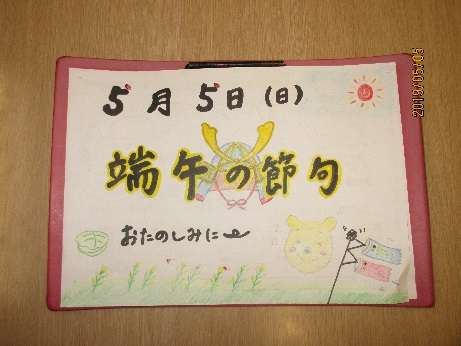 5月5日(日)
端午の節句
おたのしみに〜
2019/05/05